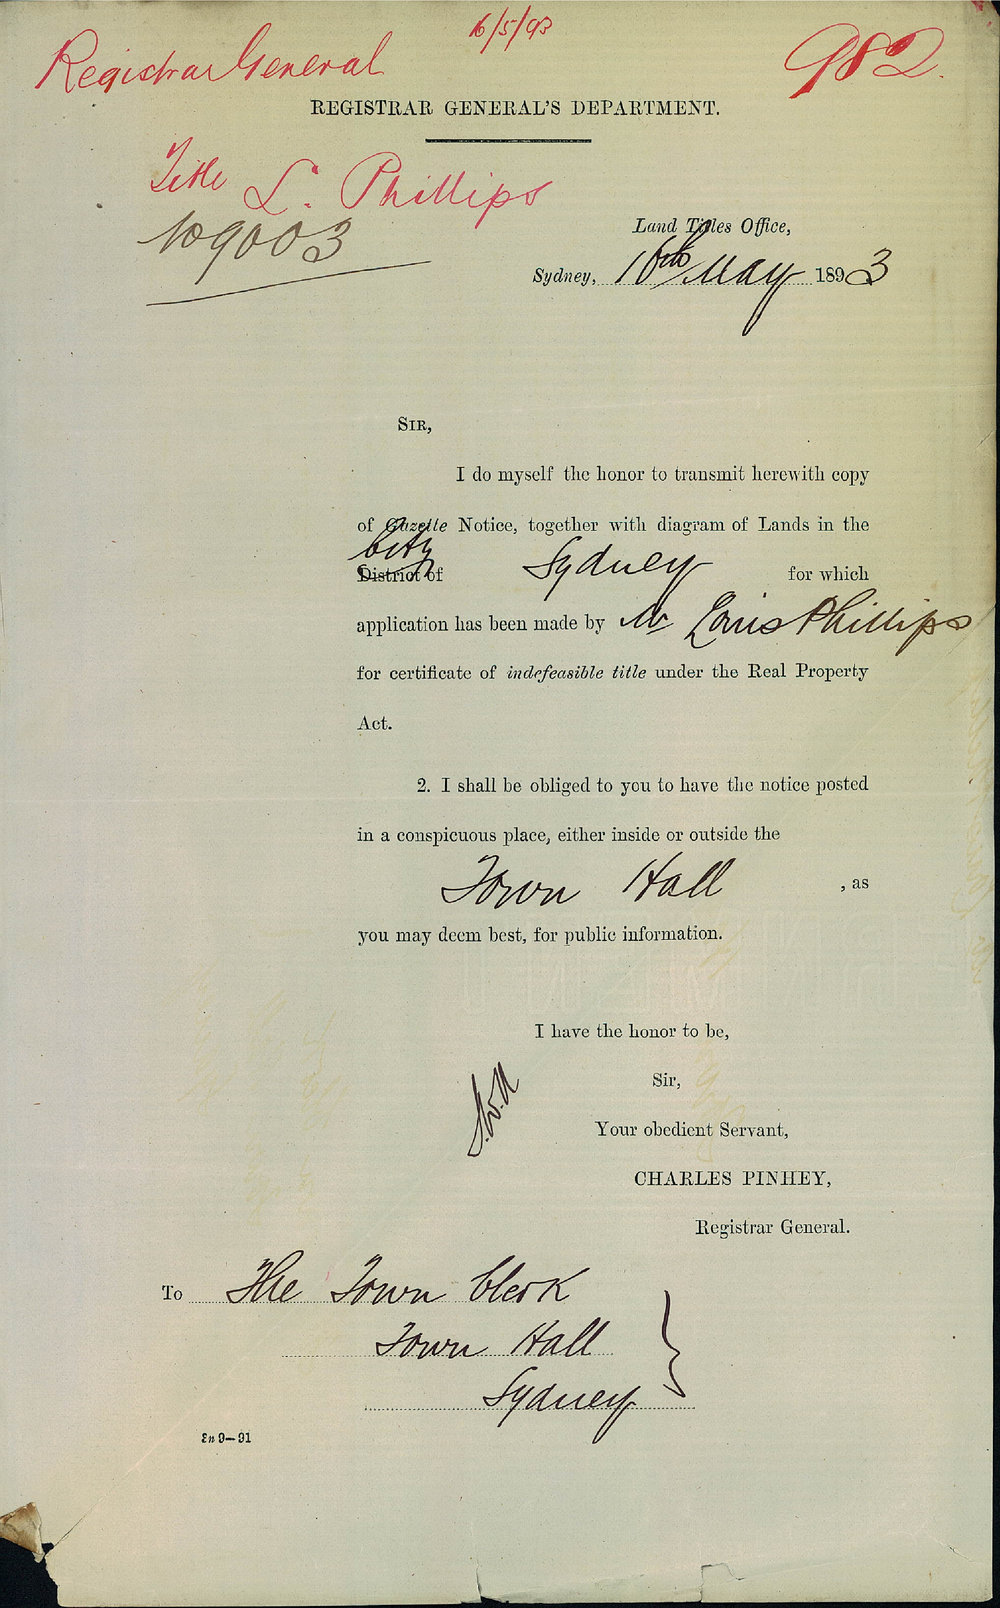 16/5/93
Registrar General
982.
REGISTRAR GENERAL'S DEPARTMENT.
Title L. Phillips
109003
Land Titles Office,
Sydney, 16th May 1893
SIR,
I do myself the honor to transmit herewith copy
of Gazette Notice, together with diagram of Lands in the
City
District of Sydney for which
application has been made by Mr Louis Phillips
for certificate of indefeasible title under the Real Property
Act.
2. I shall be obliged to you to have the notice posted
in a conspicuous place, either inside or outside the
Town Hall , as
you may deem best, for public information.
I have the honor to be,
Sir,
Your obedient Servant,
CHARLES PINHEY,
Registrar General.
To The Town Clerk
Town Hall
Sydney